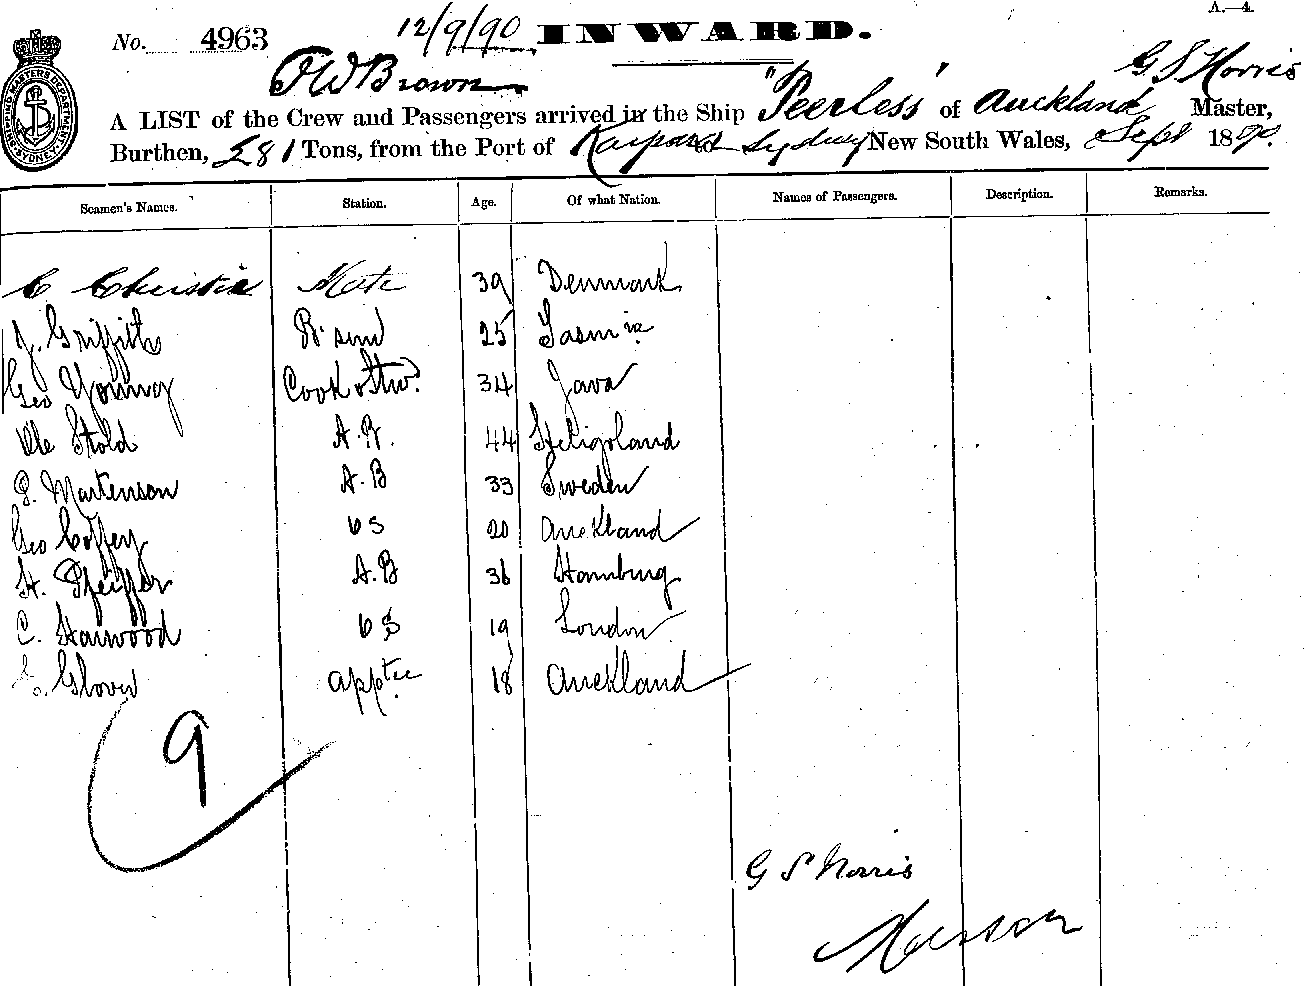 A.—4.
No. 4963 12/9/90 INWARD.
F W Brown G S Morris
A LIST of the Crew and Passengers arrived in the Ship "Peerless" of Auckland Master,
Burthen, 281 Tons, from the Port of Kaipara to Sydney New South Wales, Sept 1890.
SHIPPING MASTERS DEPARTMENT SYDNEY
Seamen's Names. Station. Age. Of what Nation. Names of Passengers. Description. Remarks.
C Christie Mate 39 Denmark
J. Griffiths Bt smn 25 Tasmia
Geo Young Cook & Stwd. 34 Java
Ole Stold A.B. 44 Heligoland
P. Martenson A.B 33 Sweden
Geo Coffey OS 20 Auckland
H. Pfeiffer A.B 36 Hamburg
C. Harwood OS 19 London
Glover apptce 18 Auckland
9
G S Morris